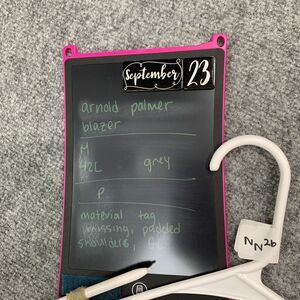 September 23
arnold palmer
blazer
M
42L grey
P.
material tag
missing, padded
shoulders,
NN26